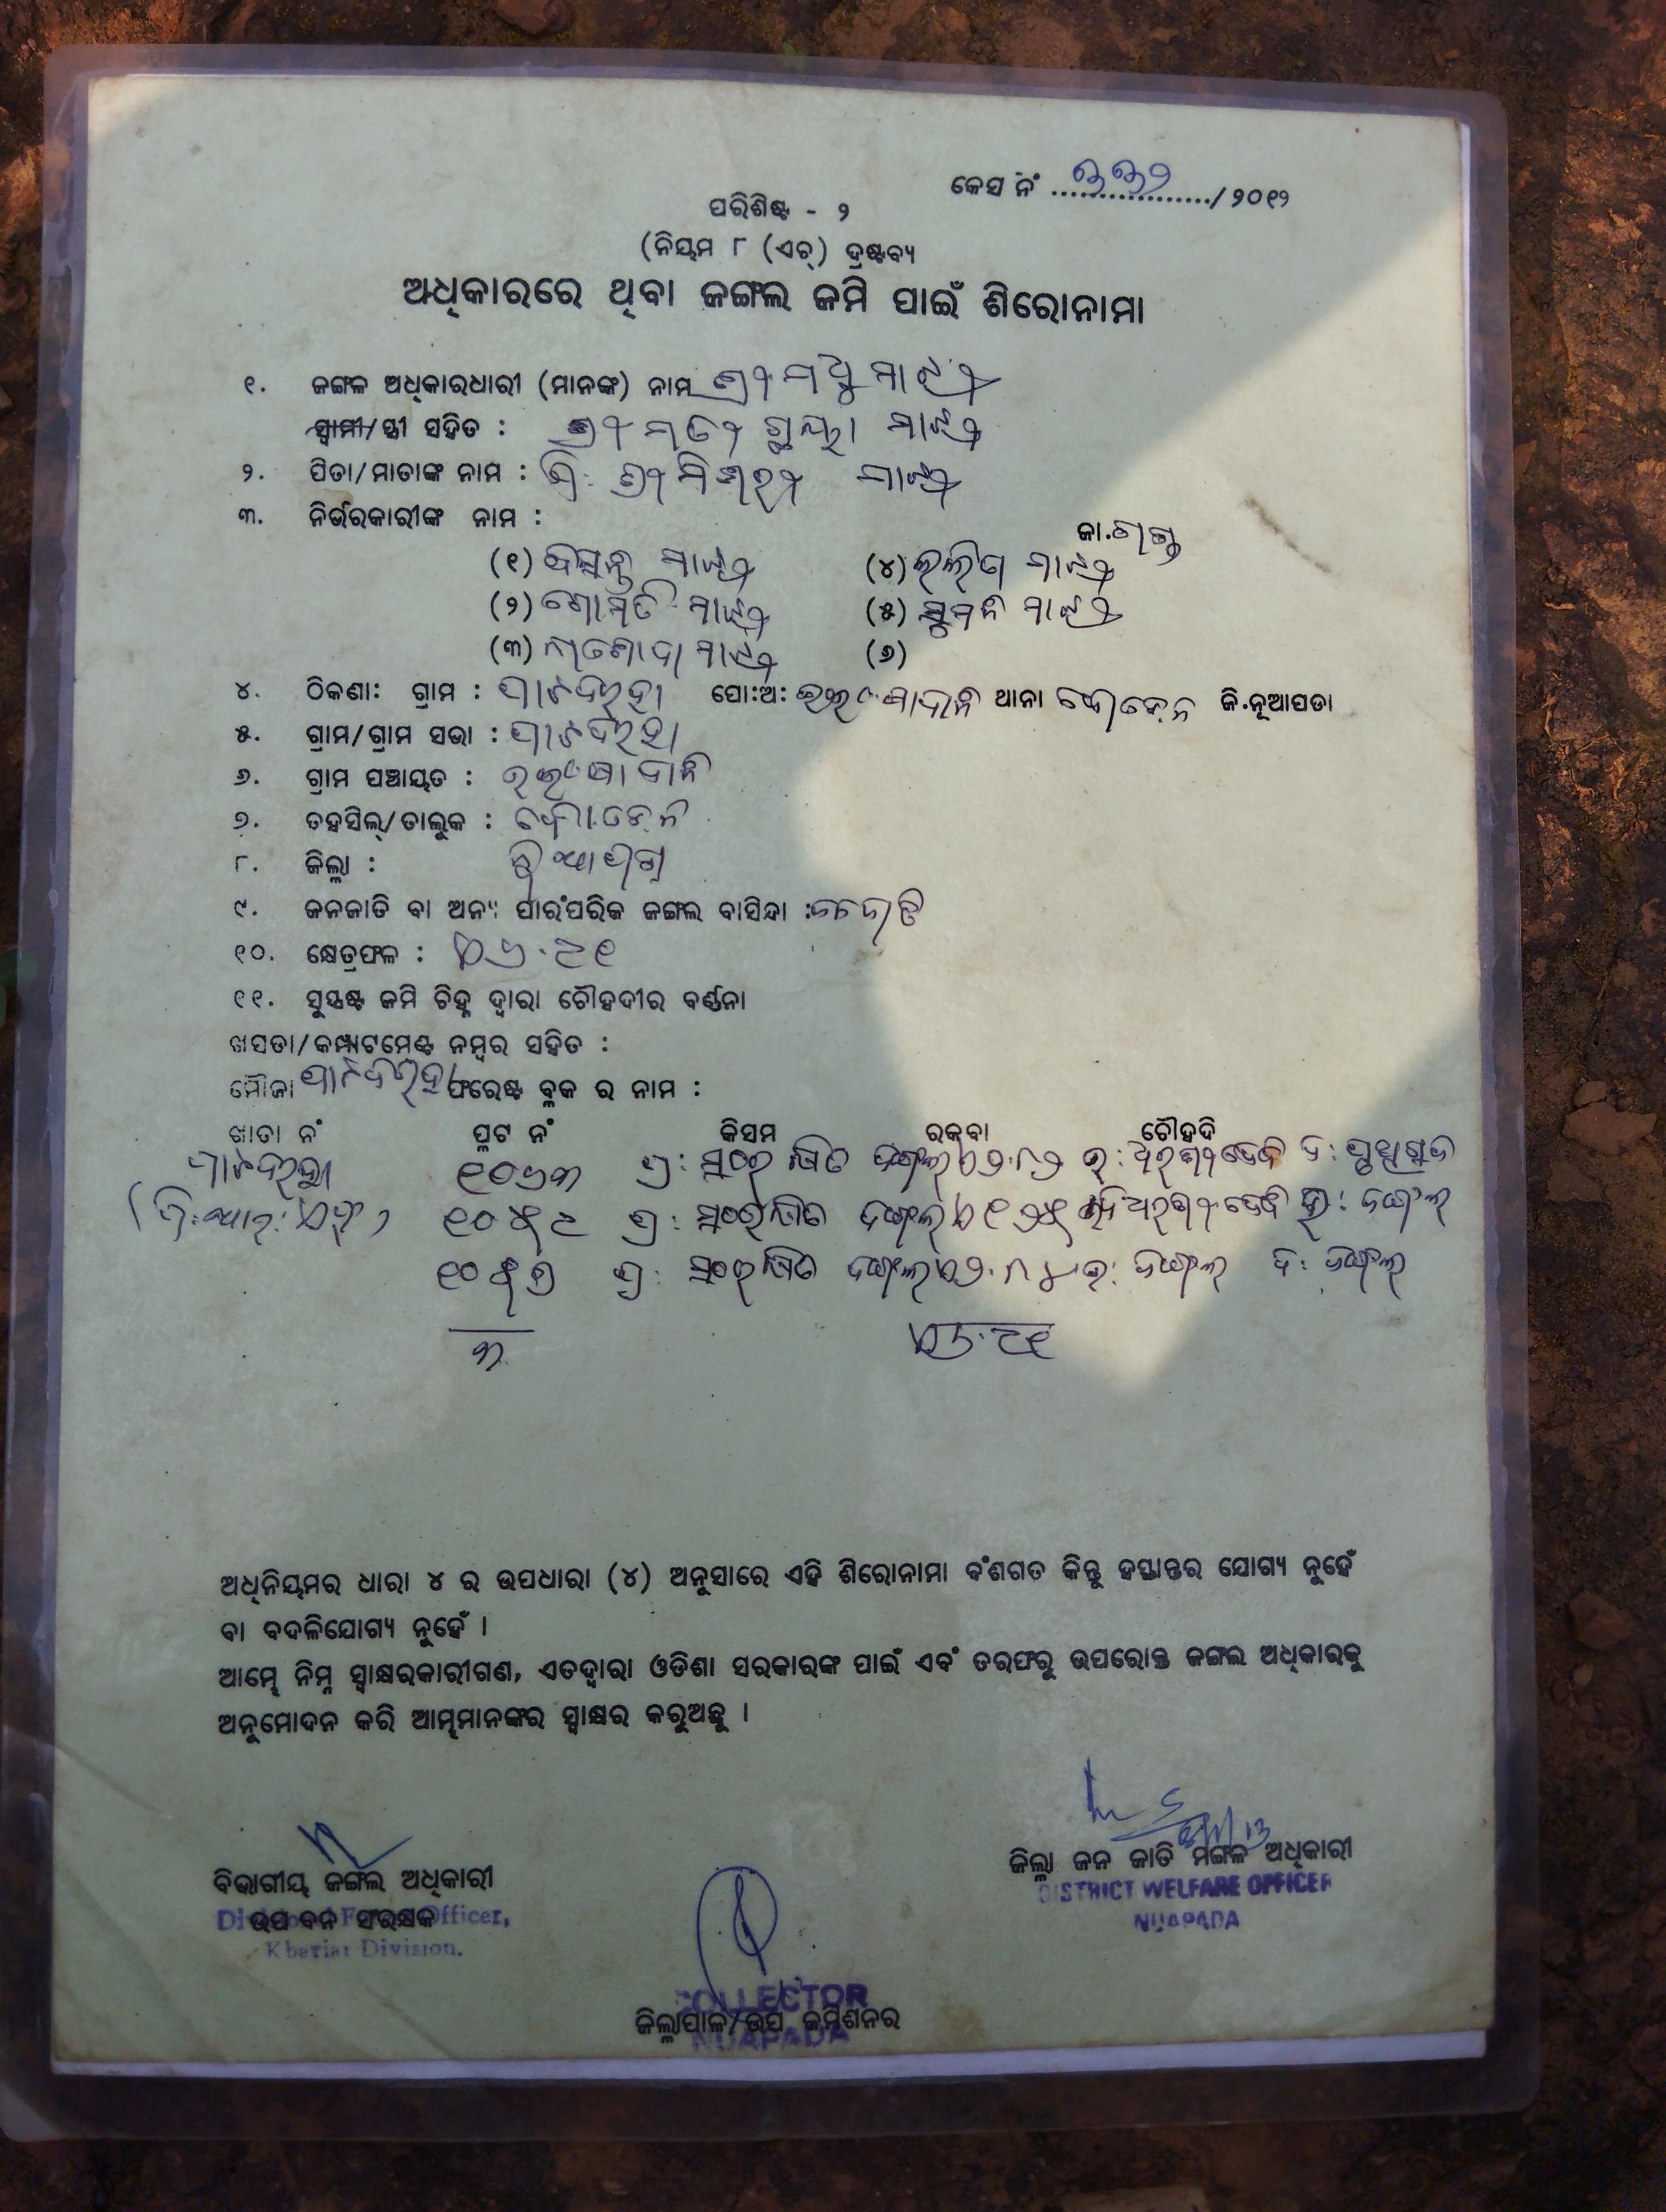 କେସ ନଂ ୩୩୨ /୨୦୧୨
ପରିଶିଷ୍ଟ - ୨
(ନିୟମ ୮ (ଏଚ୍) ଦ୍ରଷ୍ଟବ୍ୟ
ଅଧିକାରରେ ଥିବା ଜଙ୍ଗଲ ଜମି ପାଇଁ ଶିରୋନାମା
୧. ଜଙ୍ଗଲ ଅଧିକାରଧାରୀ (ମାନଙ୍କ) ନାମ ଶ୍ରୀ ମଧୁ ମାଝୀ
ସ୍ୱାମୀ/ସ୍ତ୍ରୀ ସହିତ : ଶ୍ରୀମତୀ ମାଝୀ
୨. ପିତା/ମାତାଙ୍କ ନାମ : ମାଝୀ
୩. ନିର୍ଭରକାରୀଙ୍କ ନାମ :
ଜା.ଗଣ୍ଡ
(୧) ମାଝୀ (୪) ଲଲିତା ମାଝୀ
(୨) ଗୋମତି ମାଝୀ (୫) ମାଝୀ
(୩) ଯଶୋଦା ମାଝୀ (୬)
୪. ଠିକଣା: ଗ୍ରାମ : ପାଟଦରହା ପୋ:ଅ: ଥାନା ଜି.ନୂଆପଡା
୫. ଗ୍ରାମ/ଗ୍ରାମ ସଭା : ପାଟଦରହା
୬. ଗ୍ରାମ ପଞ୍ଚାୟତ :
୭. ତହସିଲ୍/ତାଲୁକ :
୮. ଜିଲ୍ଲା : ନୂଆପଡା
୯. ଜନଜାତି ବା ଅନ୍ୟ ପାରଂପରିକ ଜଙ୍ଗଲ ବାସିନ୍ଦା : ଜନଜାତି
୧୦. କ୍ଷେତ୍ରଫଳ : ଏ୬.୯୧
୧୧. ସୁସ୍ପଷ୍ଟ ଜମି ଚିହ୍ନ ଦ୍ୱାରା ଚୌହଦୀର ବର୍ଣ୍ଣନା
ଖସଡା/କମ୍ପାଟମେଣ୍ଟ ନମ୍ବର ସହିତ :
ମୌଜା ପାଟଦରହା ଫରେଷ୍ଟ ବ୍ଲକ ର ନାମ :
ଖାତା ନଂ ପ୍ଲଟ ନଂ କିସମ ରକବା ଚୌହଦି
ପାଟଦରହା ୧୦୬୩ ପ୍ର: ସଂରକ୍ଷିତ ଜଙ୍ଗଲ ଏ୨.୮୨ ଉ: ଦ:
୧୦୫୯ ପ୍ର: ସଂରକ୍ଷିତ ଜଙ୍ଗଲ ଏ୧.୨୫ ଉ: ଜଙ୍ଗଲ
୧୦୫୭ ପ୍ର: ସଂରକ୍ଷିତ ଜଙ୍ଗଲ ଏ୨.୮୪ ଉ: ଜଙ୍ଗଲ ଦ: ଜଙ୍ଗଲ
୩ ଏ୬.୯୧
ଅଧିନିୟମର ଧାରା ୪ ର ଉପଧାରା (୪) ଅନୁସାରେ ଏହି ଶିରୋନାମା ବଂଶଗତ କିନ୍ତୁ ହସ୍ତାନ୍ତର ଯୋଗ୍ୟ ନୁହେଁ
ବା ବଦଳିଯୋଗ୍ୟ ନୁହେଁ ।
ଆମ୍ଭେ ନିମ୍ନ ସ୍ୱାକ୍ଷରକାରୀଗଣ, ଏତଦ୍ୱାରା ଓଡିଶା ସରକାରଙ୍କ ପାଇଁ ଏବଂ ତରଫରୁ ଉପରୋକ୍ତ ଜଙ୍ଗଲ ଅଧିକାରକୁ
ଅନୁମୋଦନ କରି ଆମ୍ଭମାନଙ୍କର ସ୍ୱାକ୍ଷର କରୁଅଛୁ ।
ଜିଲ୍ଲା ଜନ ଜାତି ମଙ୍ଗଳ ଅଧିକାରୀ
DISTRICT WELFARE OFFICER
NUAPADA
ବିଭାଗୀୟ ଜଙ୍ଗଲ ଅଧିକାରୀ
ଉପ ବନ ସଂରକ୍ଷକ
Divisional Forest Officer,
Khariar Division.
COLLECTOR
ଜିଲ୍ଲାପାଳ/ଉପ କମିଶନର
NUAPADA